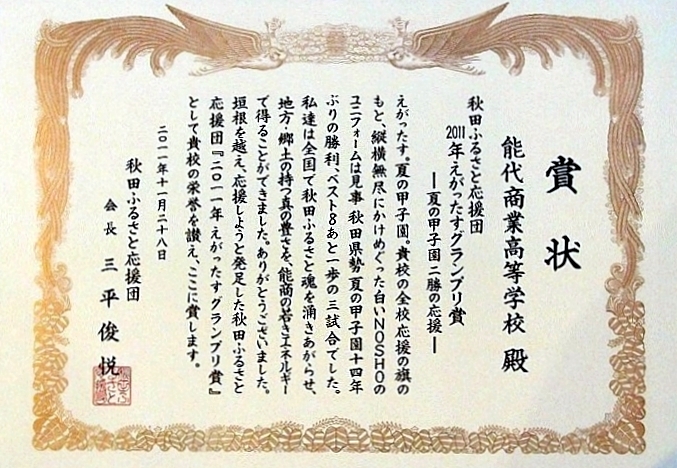 賞状
能代商業高等学校 殿
秋田ふるさと応援団
2011年えがったすグランプリ賞
―夏の甲子園 二勝の応援―
えがったす。夏の甲子園。貴校の全校応援の旗の
もと、縦横無尽にかけめぐった白いNOSHOの
ユニフォームは見事 秋田県勢 夏の甲子園十四年
ぶりの勝利、ベスト8あと一歩の三試合でした。
私達は全国で秋田ふるさと魂を涌きあがらせ、
地方・郷土の持つ真の豊さを、能商の若きエネルギー
で得ることができました。ありがとうございました。
垣根を越え、応援しようと発足した秋田ふるさと
応援団『二〇一一年 えがったす グランプリ賞』
として貴校の栄誉を讃え、ここに賞します。
二〇一一年十一月二十八日
秋田ふるさと応援団
会長 三平俊悦